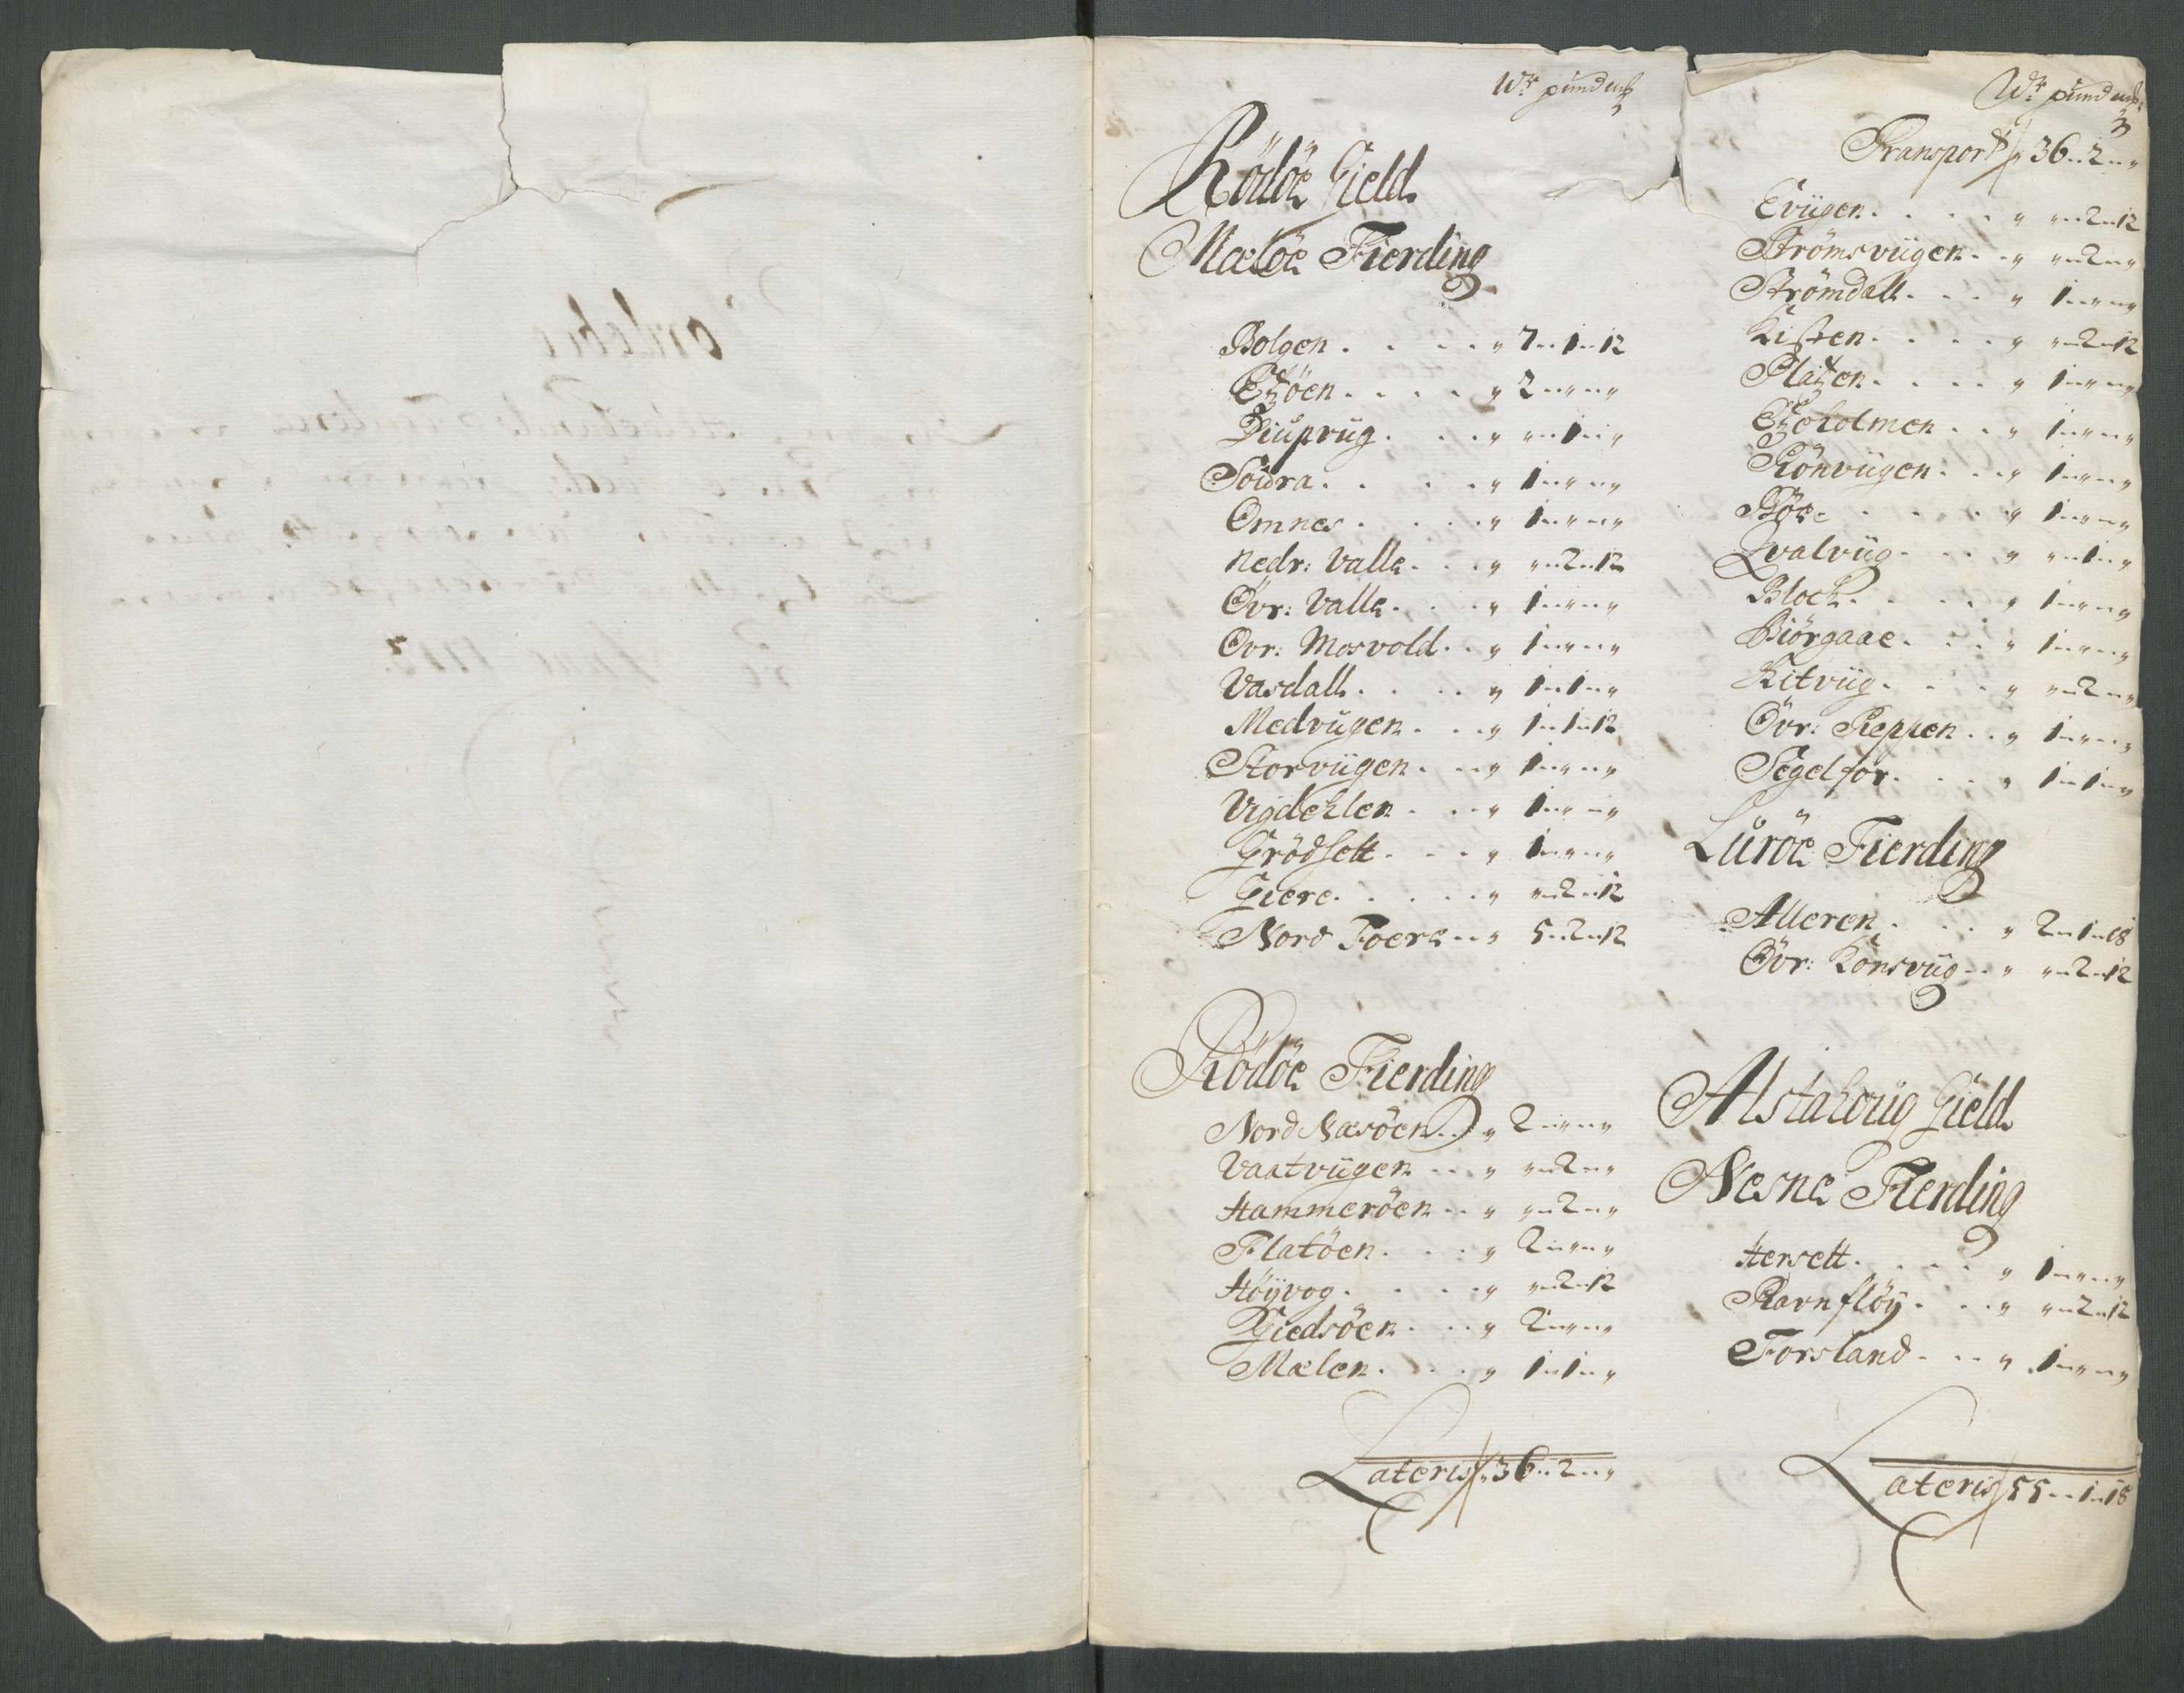 Wr pund mk
Rödöe Gield
Meløe Fierding
Bolgen . . . . „ 7 „ 1 „ 12
Etzöen . . . . „ 2 „ „ „ „
Diuprüg . . . „ „ „ 1 „ „
Söidra . . . . „ 1 „ „ „ „
Omnes . . . . „ 1 „ „ „ „
Nedr: Valle . . . „ „ „ 2 „ 12
Övr: Valle . . . „ 1 „ „ „ „
Ovr: Mosvold . . „ 1 „ „ „ „
Vasdall . . . . „ 1 „ 1 „ „
Medvügen . . . „ 1 „ 1 „ 12
Storvügen . . . „ 1 „ „ „ „
Vigdehlen . . . „ 1 „ „ „ „
Grödsett . . . „ 1 „ „ „ „
Giere . . . . . „ „ „ 2 „ 12
Nord Foere . . „ 5 „ 2 „ 12
Rödöe Fierding
Nord Næsöen . . „ 2 „ „ „ „
Vaatvügen . . . „ „ „ 2 „ „
Hammeröen . . „ „ „ 2 „ „
Flatöen . . . „ 2 „ „ „ „
Höÿvog . . . . „ „ „ 2 „ 12
Giedsöen . . . „ 2 „ „ „ „
Mælen . . . . „ 1 „ 1 „ „
Lateris „ 36 „ 2 „ „
Wr pund mk
3
Transport „ 36 „ 2 „ „
Evügen . . . . „ „ „ 2 „ 12
Strömsvügen . . „ „ „ 2 „ „
Strömdall . . . „ 1 „ „ „ „
Kisten . . . . „ „ „ 2 „ 12
Platzen . . . . „ 1 „ „ „ „
Etzeholmen . . „ 1 „ „ „ „
Rönvügen . . . „ 1 „ „ „ „
Böe . . . . . „ 1 „ „ „ „
Qvalvüg . . . „ „ „ 1 „ „
Block . . . . „ 1 „ „ „ „
Biörgaae . . . „ 1 „ „ „ „
Kitvüg . . . . „ „ „ 2 „ „
Övr: Reppen . . „ 1 „ „ „ „
Segelfor . . . „ 1 „ 1 „ „
Luröe Fierding
Alleren . . . „ 2 „ 1 „ 18
Övr: Konsvüg . . „ „ „ 2 „ 12
Alstahoug Gield
Nesne Fierding
Hersett . . . . „ 1 „ „ „ „
Ravnfløÿ . . . „ „ „ 2 „ 12
Forsland . . . „ 1 „ „ „ „
Lateris 55 „ 1 „ 18